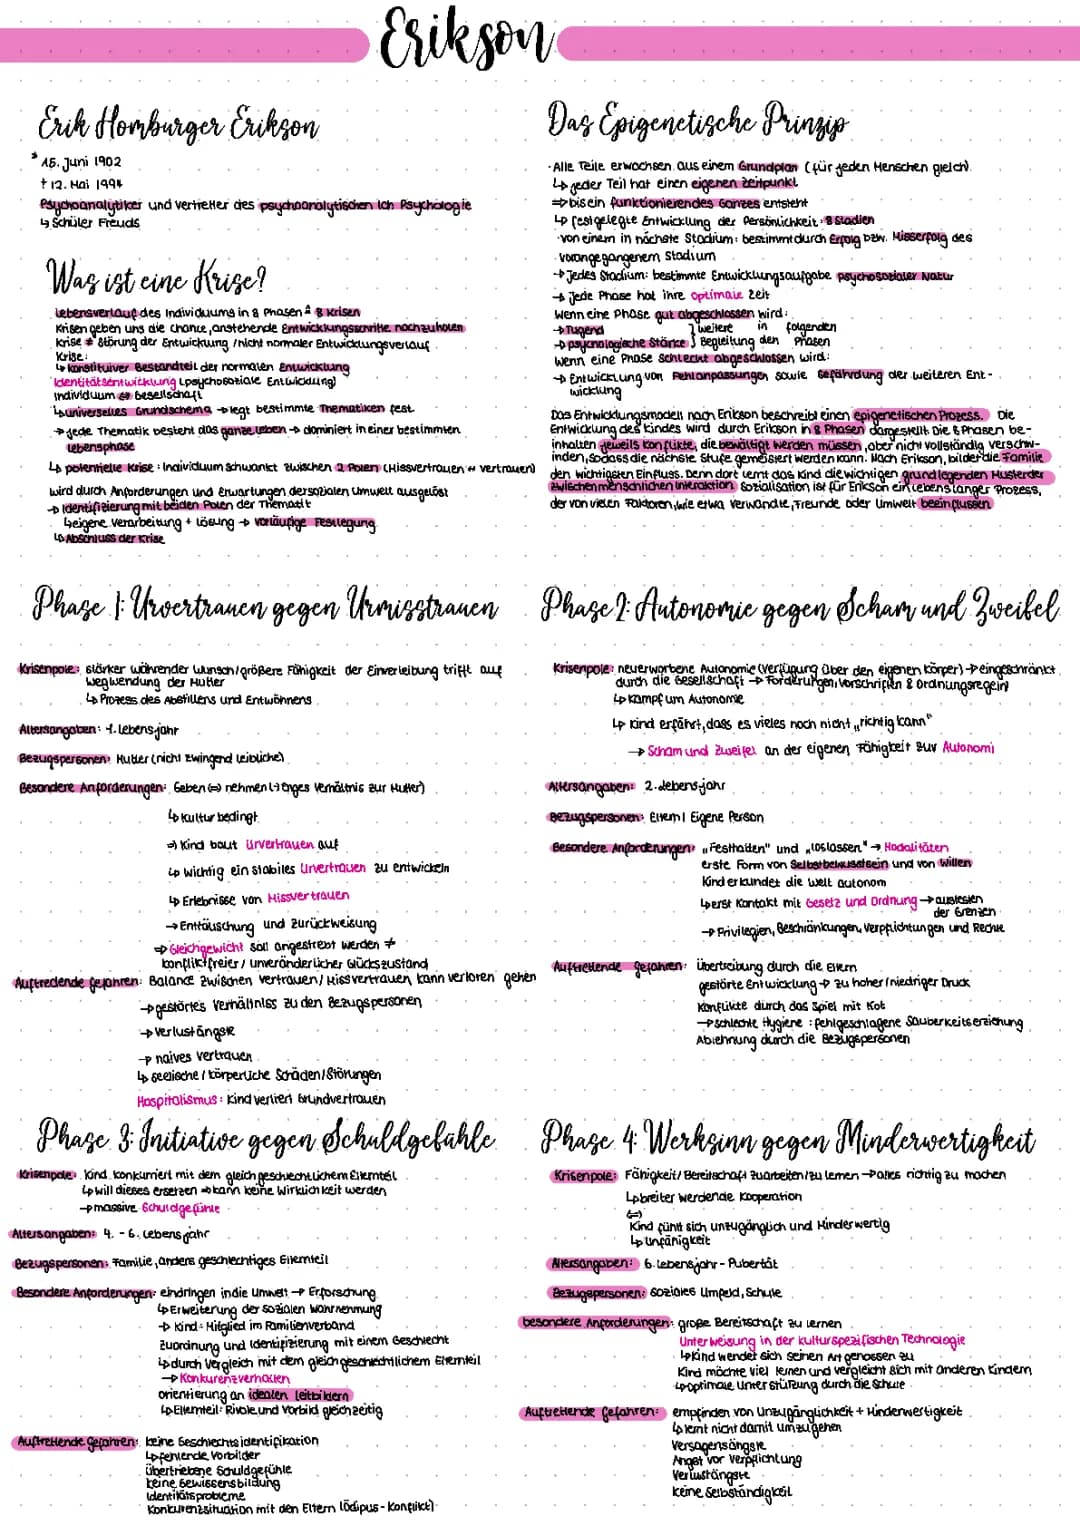 Erikson
Erik Homburger Erikson
* 15. Juni 1902
† 12. Mai 1994
Psychoanalytiker und vertretter des psychoanalytischen Ich Psychologie
↳ Schüler Freuds
Was ist eine Krise?
Lebensverlauf des Individuums in 8 Phasen ≙ 8 Krisen
Krisen geben uns die chance, anstehende Entwicklungsschritte nachzuholen
Krise ≠ Störung der Entwicklung / nicht normaler Entwicklungsverlauf
Krise:
↳ konstituiver Bestandteil der normalen Entwicklung
Identitätsentwicklung (psychosoziale Entwicklung)
Individuum ⇔ Gesellschaft
↳ universelles Grundschema → legt bestimmte Thematiken fest
→ jede Thematik besteht das ganze Leben → dominiert in einer bestimmten
Lebensphase
↳ potentielle Krise: Individuum schwankt zwischen 2 Polen (Missvertrauen ↔ vertrauen)
wird durch Anforderungen und Erwartungen der sozialen Umwelt ausgelöst
→ Identifizierung mit beiden Polen der Thematik
↳ eigene Verarbeitung + Lösung → vorläufige Festlegung
↳ Abschluss der Krise
Das Epigenetische Prinzip
· Alle Teile erwachsen aus einem Grundplan (für jeden Menschen gleich)
↳ jeder Teil hat einen eigenen Zeitpunkt
⇒ bis ein funktionierendes Ganzes entsteht
↳ festgelegte Entwicklung der Persönlichkeit: 8 Stadien
· von einem in nächste Stadium: bestimmt durch Erfolg bzw. Misserfolg des
vorangegangenem Stadium
→ Jedes Stadium: bestimmte Entwicklungsaufgabe psychosozialer Natur
→ Jede Phase hat ihre optimale Zeit
Wenn eine Phase gut abgeschlossen wird:
→ Tugend } weitere in folgenden
→ psychologische Stärke } Begleitung den Phasen
Wenn eine Phase schlecht abgeschlossen wird:
→ Entwicklung von Fehlanpassungen sowie Gefährdung der weiteren Ent-
wicklung
Das Entwicklungsmodell nach Erikson beschreibt einen epigenetischen Prozess. Die
Entwicklung des Kindes wird durch Erikson in 8 Phasen dargestellt. Die 8 Phasen be-
inhalten jeweils konflikte, die bewältigt werden müssen, aber nicht vollständig verschw-
inden, sodass die nächste Stufe gemeistert werden kann. Nach Erikson, bildet die Familie
den wichtigsten Einfluss. Denn dort lernt das Kind die wichtigen, grundlegenden Muster der
zwischenmenschlichen Interaktion. Sozialisation ist für Erikson ein lebenslanger Prozess,
der von vielen Faktoren, wie etwa Verwandte, Freunde oder Umwelt beeinflussen
Phase 1: Urvertrauen gegen Urmisstrauen
Krisenpole: stärker währender Wunsch/größere Fähigkeit der Einverleibung trifft auf
wegwendung der Mutter
↳ Prozess des Abstillens und Entwöhnens
Altersangaben: 1. Lebensjahr
Bezugspersonen: Mutter (nicht zwingend leibliche)
Besondere Anforderungen: Geben ⇔ nehmen (→ enges Verhältnis zur Mutter)
↳ kultur bedingt
⇒ Kind baut Urvertrauen auf
↳ wichtig ein stabiles Urvertrauen zu entwickeln
↳ Erlebnisse von Missvertrauen
→ Enttäuschung und Zurückweisung
⇒ Gleichgewicht soll angestrebt werden ≠
konfliktfreier / unveränderlicher Glückszustand
Auftredende Gefahren: Balance zwischen Vertrauen/Missvertrauen kann verloren gehen
→ gestörtes Verhältniss zu den Bezugspersonen
→ Verlustängste
→ naives Vertrauen
↳ seelische / körperliche Schäden / Störungen
Hospitalismus: Kind verliert Grundvertrauen
Phase 2: Autonomie gegen Scham und Zweifel
Krisenpole: neuerworbene Autonomie (Verfügung über den eigenen Körper) → eingeschränkt
durch die Gesellschaft → Forderungen, Vorschriften & Ordnungsregeln)
↳ Kampf um Autonomie
↳ kind erfährt, dass es vieles noch nicht „richtig kann"
→ Scham und Zweifel an der eigenen Fähigkeit zur Autonomi
Altersangaben: 2. Lebensjahr
Bezugspersonen: Eltern / Eigene Person
Besondere Anforderungen: „Festhalten" und „loslassen" → Modalitäten
erste Form von Selbstbewusstsein und von Willen
Kind erkundet die Welt autonom
↳ erst Kontakt mit Gesetz und Ordnung → austesten
der Grenzen
→ Privilegien, Beschränkungen, Verpflichtungen und Rechte
Auftretende Gefahren: Übertreibung durch die Eltern
gestörte Entwicklung → zu hoher/niedriger Druck
Konflikte durch das Spiel mit Kot
→ schlechte Hygiene: fehlgeschlagene Sauberkeitserziehung
Ablehnung durch die Bezugspersonen
Phase 3: Initiative gegen Schuldgefühle
Krisenpole: Kind konkurriert mit dem gleichgeschlechtlichem Elternteil
↳ will dieses ersetzen ⇒ kann keine Wirklichkeit werden
→ massive Schuldgefühle
Altersangaben: 4. - 6. Lebensjahr
Bezugspersonen: Familie, anders geschlechtiges Elternteil
Besondere Anforderungen: eindringen in die Umwelt → Erforschung
↳ Erweiterung der sozialen Wahrnehmung
→ Kind: Mitglied im Familienverband
Zuordnung und Identifizierung mit einem Geschlecht
↳ durch Vergleich mit dem gleichgeschlechtlichem Elternteil
→ Konkurenzverhalten
orientierung an idealen Leitbildern
↳ Elternteil: Rivole und Vorbild gleichzeitig
Auftretende Gefahren: keine Geschlechtsidentifikation
↳ fehlende Vorbilder
übertriebene Schuldgefühle
keine Gewissensbildung
Identitätsprobleme
Konkurenzsituation mit den Eltern (Ödipus-Konflikt)
Phase 4: Werksinn gegen Minderwertigkeit
Krisenpole: Fähigkeit/Bereitschaft zu arbeiten/zu lernen → alles richtig zu machen
↳ breiter werdende Kooperation
⇔
Kind fühlt sich unzugänglich und Minderwertig
↳ Unfähigkeit
Altersangaben: 6. Lebensjahr - Pubertät
Bezugspersonen: Soziales Umfeld, Schule
besondere Anforderungen: große Bereitschaft zu lernen
Unterweisung in der kulturspezifischen Technologie
↳ Kind wendet sich seinen Artgenossen zu
Kind möchte viel lernen und vergleicht sich mit anderen Kindern
↳ optimale Unterstützung durch die Schule
Auftretende Gefahren: empfinden von Unzugänglichkeit + Minderwertigkeit
↳ lernt nicht damit umzugehen
Versagensängste
Angst vor Verpflichtung
Verlustängste
keine Selbständigkeit